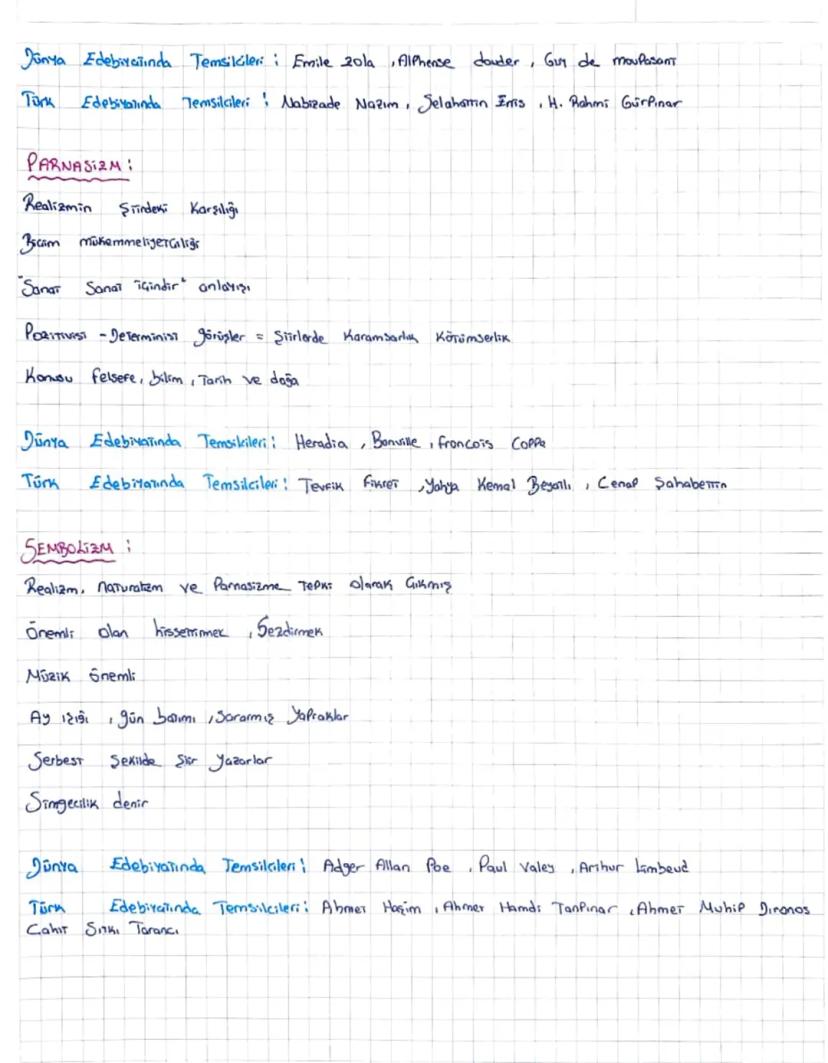 Dünya Edebiyatında Temsilcileri : Emile Zola , Alphense douder , Guy de moupasant
Türk Edebiyatında Temsilcileri : Nabizade Nazım , Selahattin Enis , H. Rahmi Gürpınar
PARNASİZM :
Realizmin Şiirdeki Karşılığı
Biçim mükemmeliyetçiliği
"Sanat Sanat içindir" anlayışı
Pozitivist - Determinist görüşler = Şiirlerde Karamsarlık Kötümserlik
Konusu felsefe, bilim , Tarih ve doğa
Dünya Edebiyatında Temsilcileri : Heradia , Banville , francois Coppe
Türk Edebiyatında Temsilcileri : Tevfik Fikret , Yahya Kemal Beyatlı , Cenap Şahabettin
SEMBOLİZM :
Realizm, naturalizm ve Parnasizme Tepki olarak Çıkmış
Önemli olan hissettirmek , Sezdirmek
Müzik önemli
Ay ışığı , gün batımı , Sararmış Yapraklar
Serbest Şekilde Şiir Yazarlar
Simgecilik denir
Dünya Edebiyatında Temsilcileri : Adger Allan Poe , Paul Valey , Arthur Limbeud
Türk Edebiyatında Temsilcileri : Ahmet Haşim , Ahmet Hamdi Tanpınar , Ahmet Muhip Dıranas
Cahit Sıtkı Tarancı